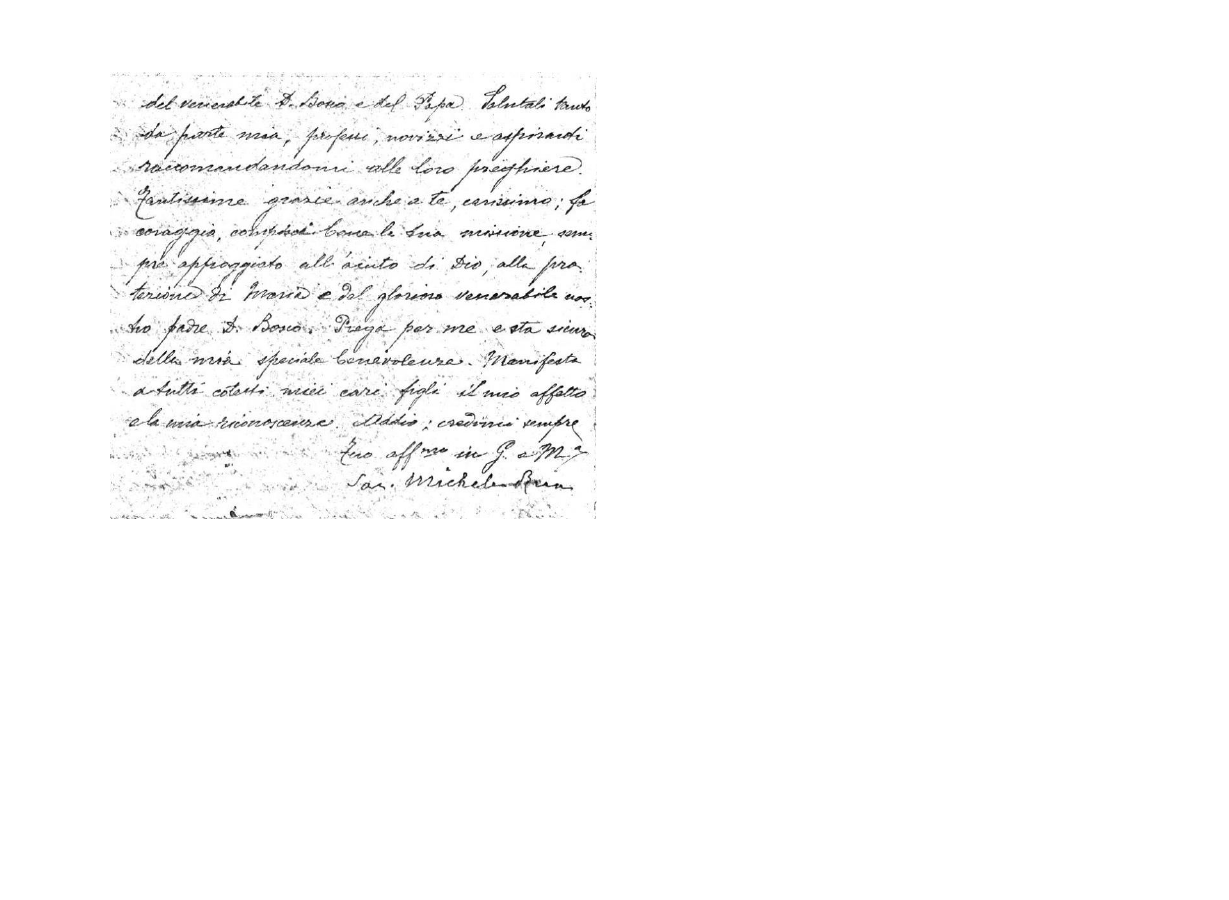 del venerabile D. Bosco e del Papa. Salutali tanto
da parte mia, professi, novizzi e aspiranti
raccomandandomi alle loro preghiere.
Tantissime grazie anche a te, carissimo; fa
coraggio, compisci bene la tua missione, sem-
pre appoggiato all'aiuto di Dio, alla pro-
tezione di Maria e del glorioso venerabile nos-
tro padre D. Bosco. Prega per me e sta sicuro
della mia speciale benevolenza. Manifesta
a tutti cotesti miei cari figli il mio affetto
e la mia riconoscenza. Addio; credimi sempre
Tuo affmo in G. e M.
Sac. Michele Rua